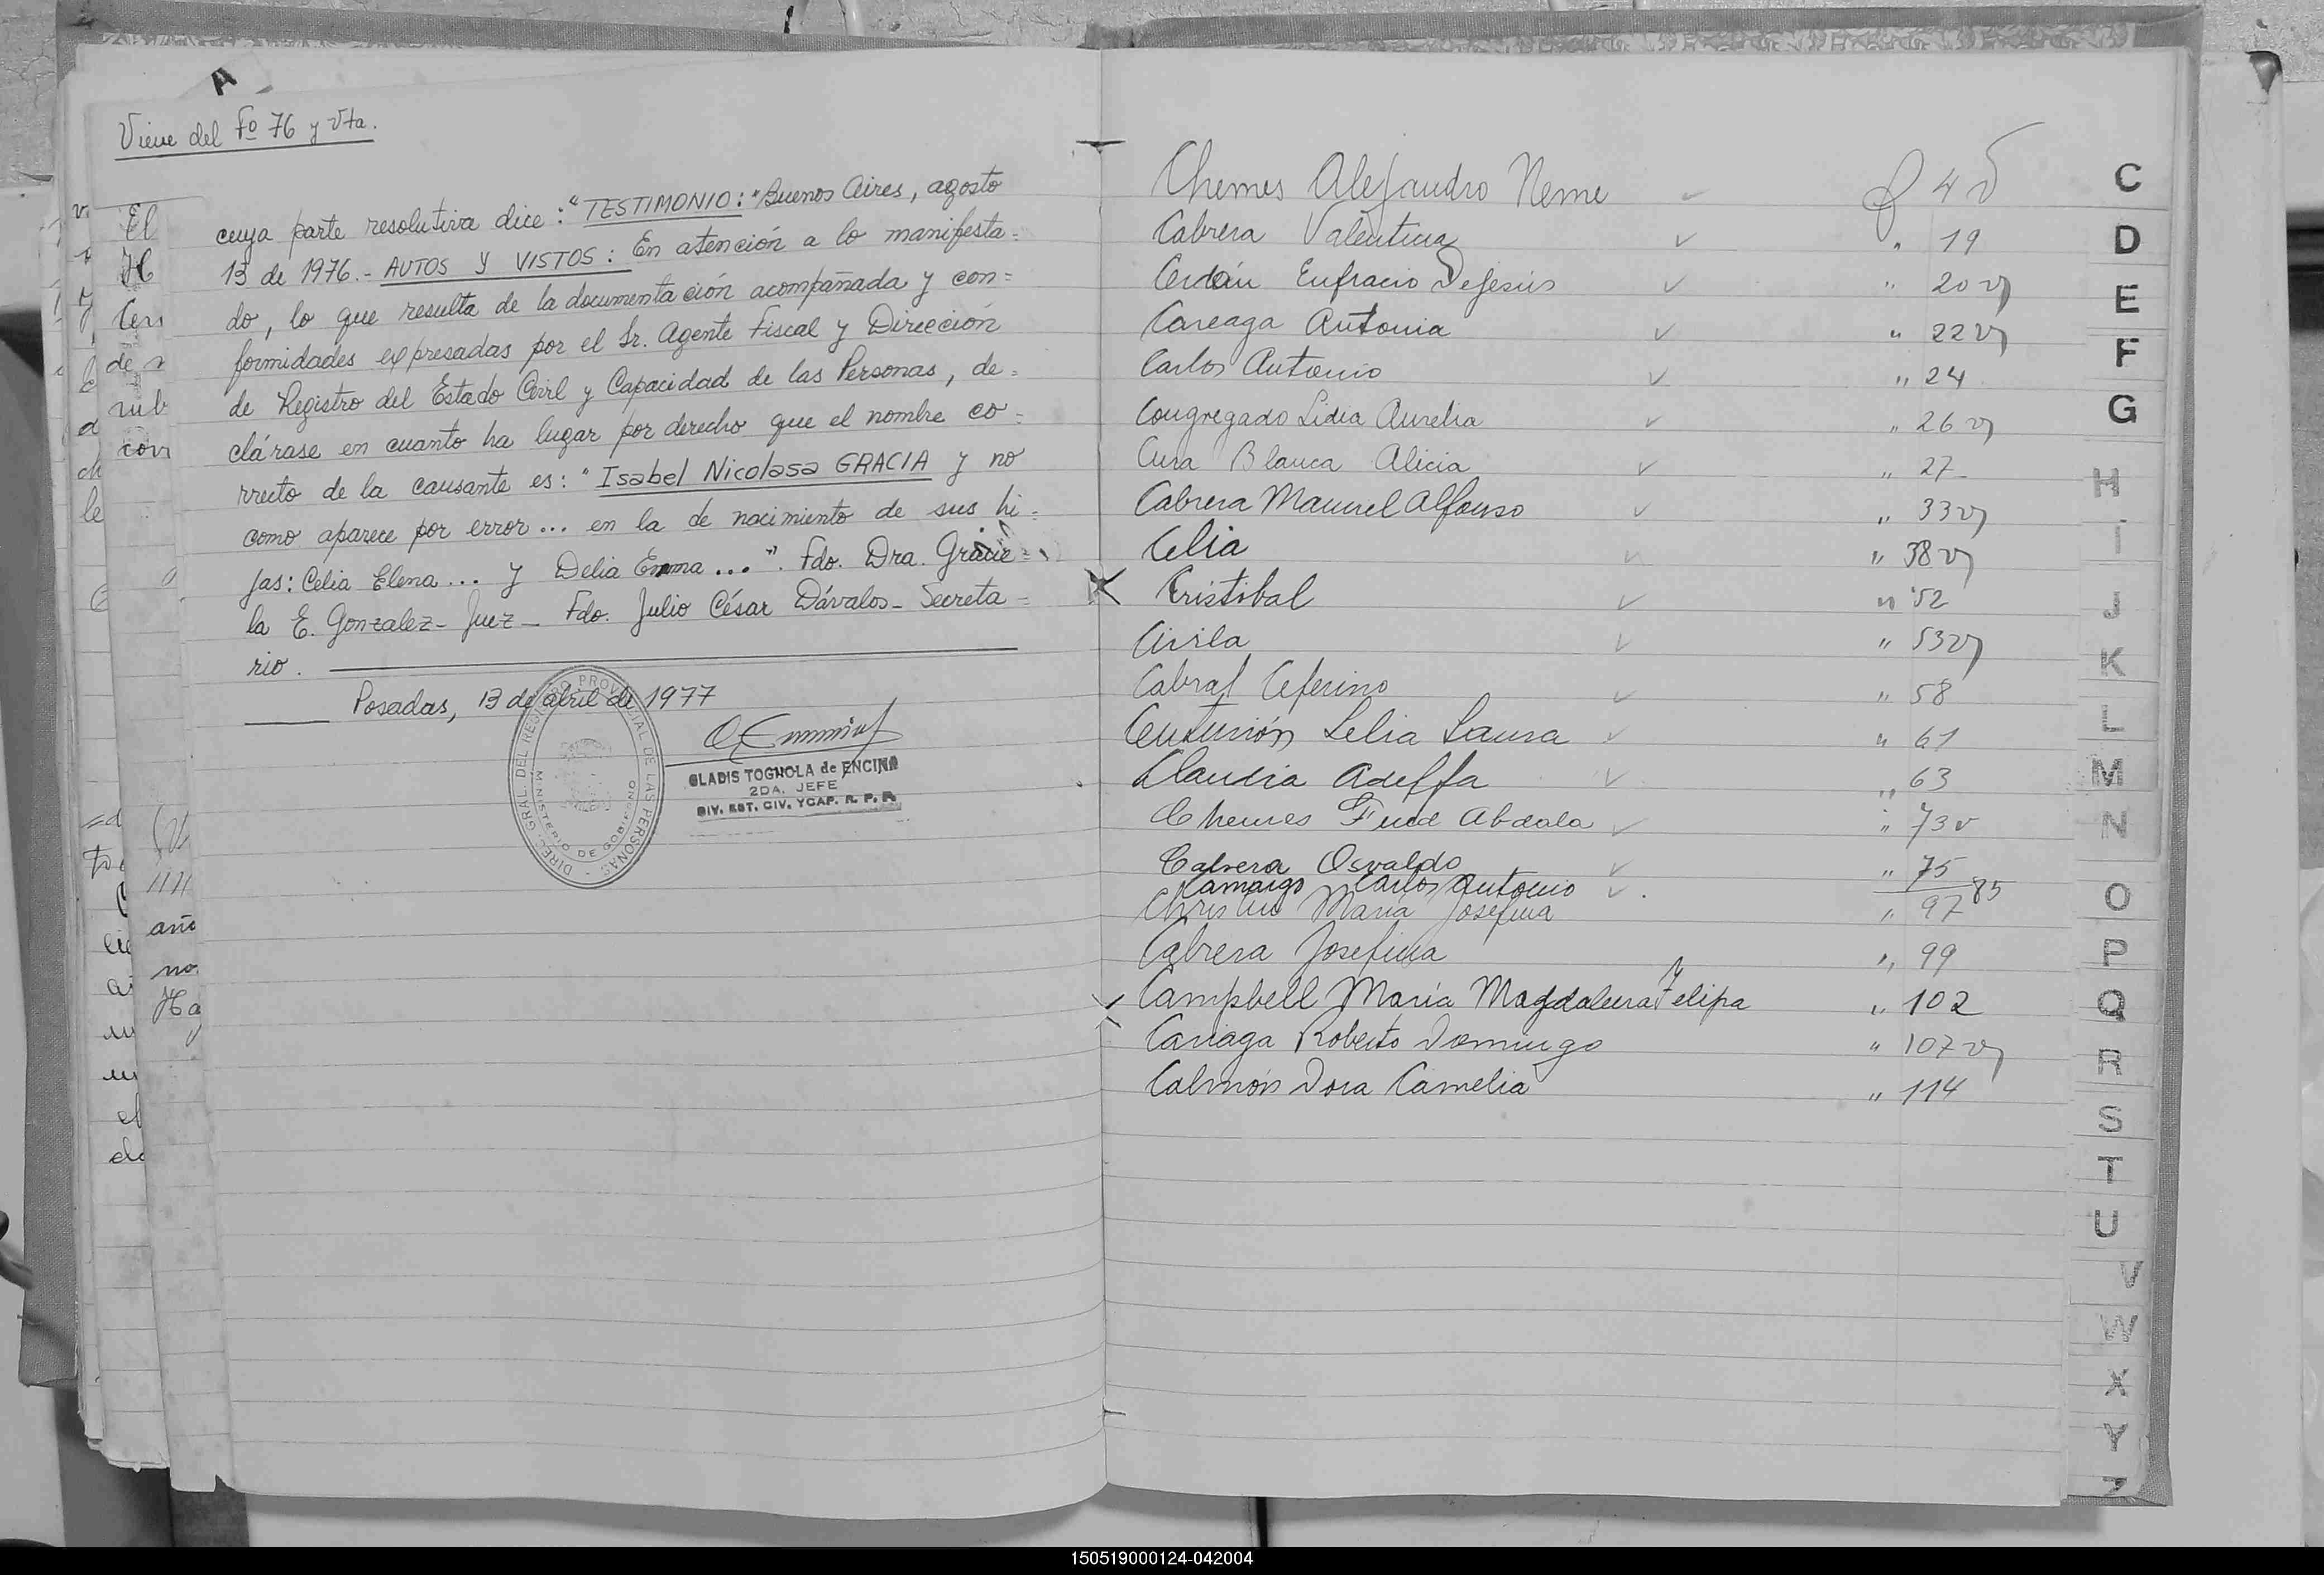 A
Viene del Fº 76 y Vta.
cuya parte resolutiva dice: "TESTIMONIO: "Buenos Aires, agosto
13 de 1976.- AUTOS Y VISTOS: En atención a lo manifesta=
do, lo que resulta de la documentación acompañada y con=
formidades expresadas por el Sr. Agente Fiscal y Dirección
de Registro del Estado Civil y Capacidad de las Personas, de=
clárase en cuanto ha lugar por derecho que el nombre co=
rrecto de la causante es: "Isabel Nicolasa GRACIA y no
como aparece por error... en la de nacimiento de sus hi=
jas: Celia Elena... y Delia Emma...". Fdo. Dra. Gracie=
la E. Gonzalez- Juez- Fdo. Julio César Dávalos- Secreta-
rio.
Posadas, 13 de abril de 1977
GLADIS TOGNOLA de ENCINA
2DA. JEFE
DIV. EST. CIV. YCAP. R. P. P.
DIREC. GRAL. DEL REGISTRO PROVINCIAL DE LAS PERSONAS
MINISTERIO DE GOBIERNO
Chemes Alejandro Neme f 4 v
Cabrera Valentina " 19
Cerdán Eufracio Dejesús " 20 v
Careaga Antonia " 22 v
Carlos Antonio " 24
Congregado Lidia Aurelia " 26 v
Cura Blanca Alicia " 27
Cabrera Manuel Alfonso " 33 v
Celia " 38 v
Cristobal " 52
Civila " 53 v
Cabral Ceferino " 58
Centurión Lelia Laura " 61
Claudia Adelfa " 63
Chemes Fued Abdala " 73 v
Cabrera Osvaldo " 75
Camargo Carlos Antonio 85
Christin María Josefina " 97
Cabrera Josefina " 99
Campbell María Magdalena Felipa " 102
Cariaga Roberto Domingo " 107 v
Calmón Dora Camelia " 114
C
D
E
F
G
H
I
J
K
L
M
N
O
P
Q
R
S
T
U
V
W
X
Y
Z
150519000124-042004